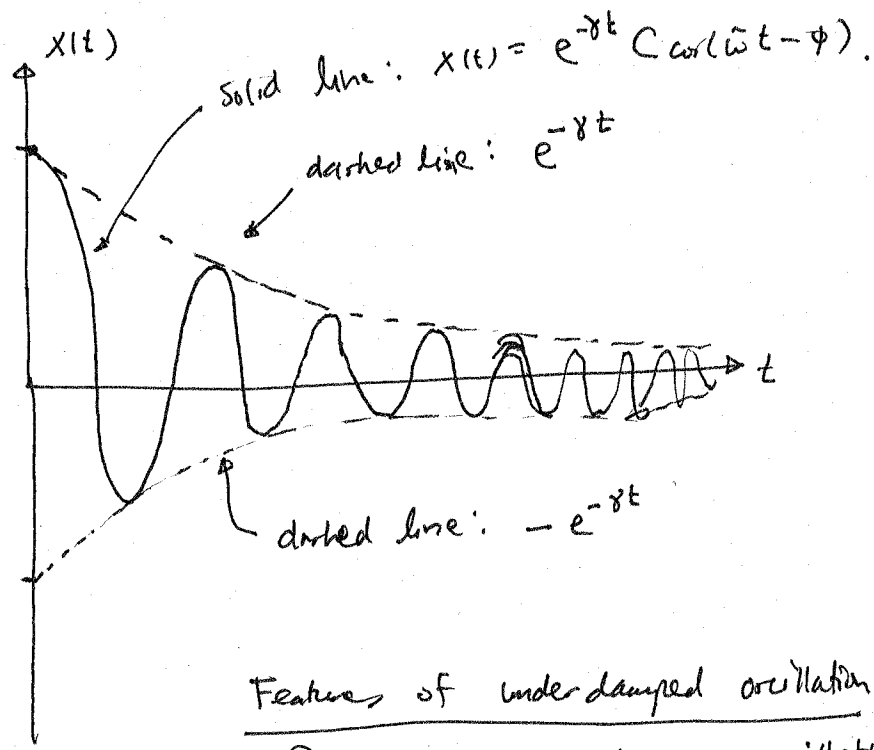 x(t)
solid line: x(t) = e^{-γt} C cos(ω̃t - φ).
dashed line: e^{-γt}
t
dashed line: - e^{-γt}
Features of underdamped oscillation